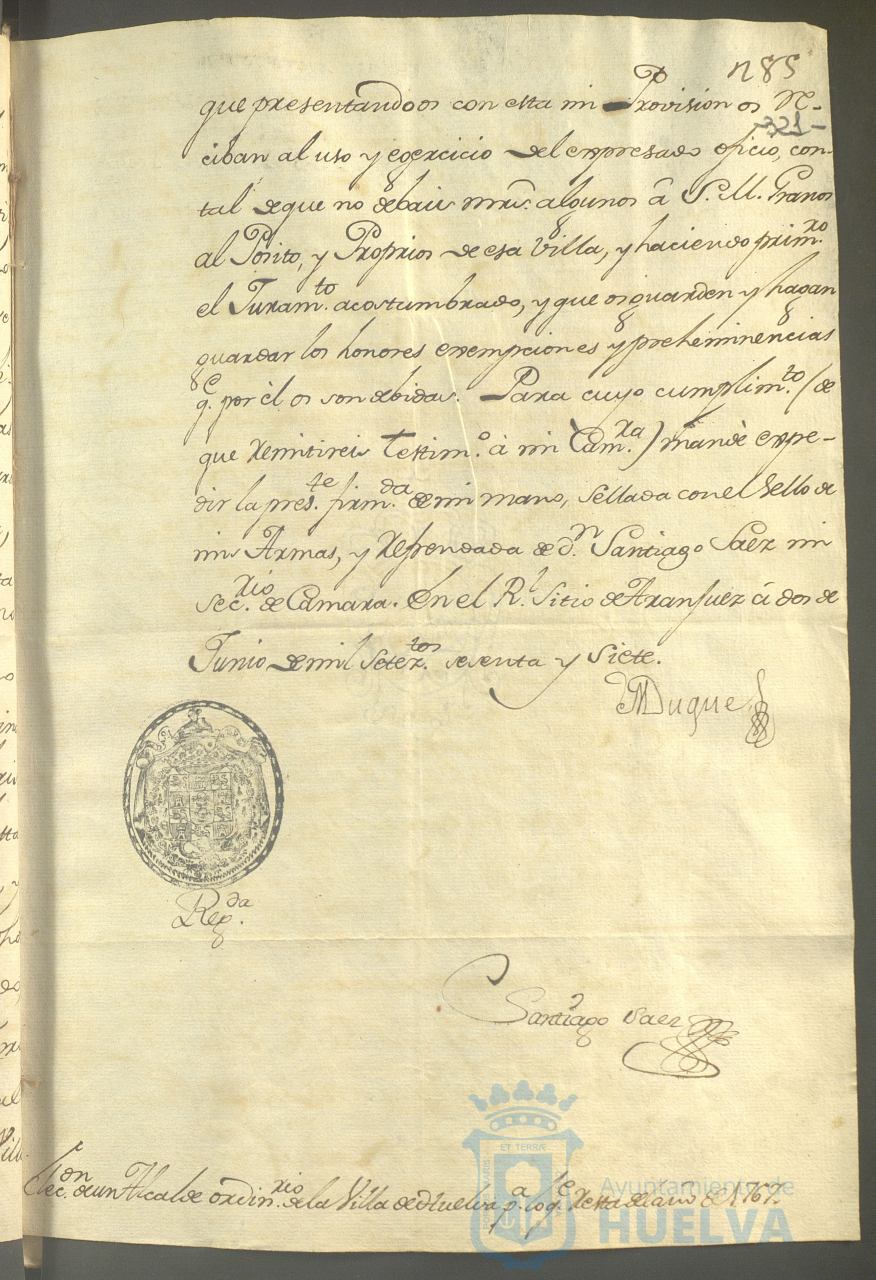 285
-321-
que presentandoos con esta mi Provision os Re-
ciban al uso y egercicio del expresado oficio, con-
tal de que no debais mrs. algunos â S. M. Granos
al Posito, y Proprios de esa Villa, y haciendo prim.ro
el Juram.to acostumbrado, y que os guarden y hagan
guardar los honores exempciones y preheminencias
q.e por èl os son debidas. Para cuyo cumplim.to (de
que remitireis Testim.o à mi Cam.ra) mandè expe-
dir la pres.te firm.da de mi mano, sellada con el Sello de
mis Armas, y Refrendada de d.n Santiago Saez mi
Sec.rio de Camara. En el R.l Sitio de Aranjuez à dos de
Junio de mil Setez.tos sesenta y Siete.
El Duque
Reg.da
Santiago Saez
Elec.on de un Alcalde ordin.rio de la Villa de Huelva p.a lo q.e resta del año de 1767.
ET TERRÆ
Ayuntamiento de
HUELVA